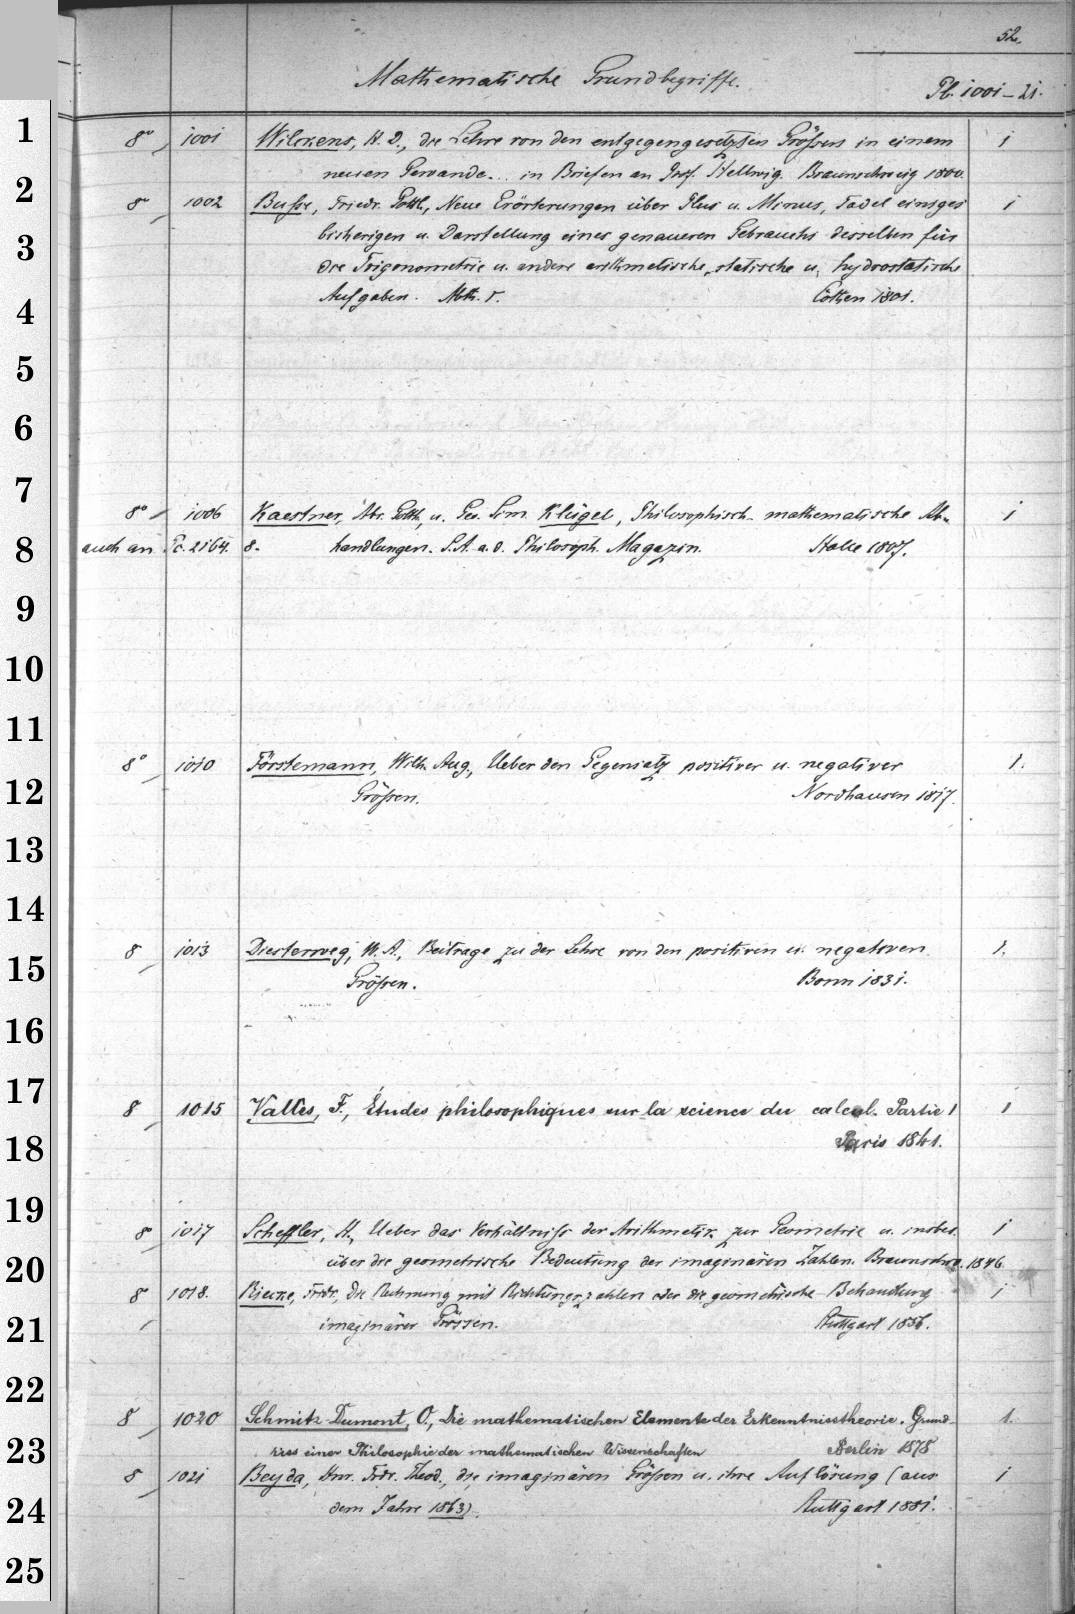 52.
Mathematische Grundbegriffe.
Pb. 1001-21.
1
8° 1001 Wilckens, H. D., die Lehre von den entgegengesetzten Grössen in einem 1
2
neuen Gewande... in Briefen an Prof. Hellwig. Braunschweig 1800.
8° 1002 Busse, Friedr. Gottl., Neue Erörterungen über Plus u. Minus, Tadel einiges 1
3
bisherigen u. Darstellung eines genaueren Gebrauchs desselben für
die Trigonometrie u. andere arithmetische, statische u. hydrostatische
4
Aufgaben. Abth. I. Cöthen 1801.
5
6
7
8° 1006 Kaestner, Abr. Gotth. u. Geo. Sim. Klügel, Philosophisch-mathematische Ab- 1
8
auch an Pc. 2164. 8. handlungen. S.A. a. d. Philosoph. Magazin. Halle 1807.
9
10
11
8° 1010 Förstemann, Wilh. Aug., Ueber den Gegensatz positiver u. negativer 1.
12
Grössen. Nordhausen 1817.
13
14
8 1013 Diesterweg, W. A., Beitrage zu der Lehre von den positiven u. negativen 1.
15
Grössen. Bonn 1831.
16
17
8 1015 Vallès, F., Études philosophiques sur la science du calcul. Partie 1 1
18
Paris 1841.
19
8° 1017 Scheffler, H., Ueber das Verhältniss der Arithmetik zur Geometrie u. insbes. 1
20
über die geometrische Bedeutung der imaginären Zahlen. Braunschw. 1846.
8 1018. Riecke, Frdr., Die Rechnung mit Richtungszahlen oder die geometrische Behandlung 1
21
imaginärer Grössen. Stuttgart 1856.
22
8 1020 Schmitz-Dumont, O., Die mathematischen Elemente der Erkenntnisstheorie. Grund- 1.
23
riss einer Philosophie der mathematischen Wissenschaften Berlin 1878
8 1021 Beyda, Hnr. Frdr. Theod., die imaginären Grössen u. ihre Auflösung (aus 1
24
dem Jahre 1863). Stuttgart 1881.
25